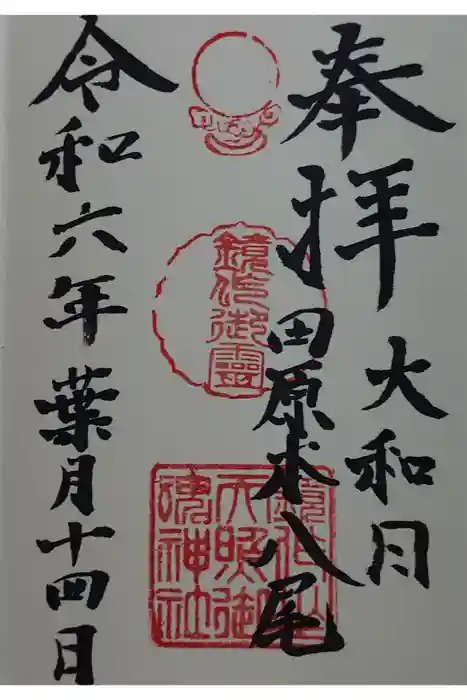 奉拝
大和国
田原本八尾
鏡作御霊
鏡作坐天照御魂神社
令和六年葉月十四日